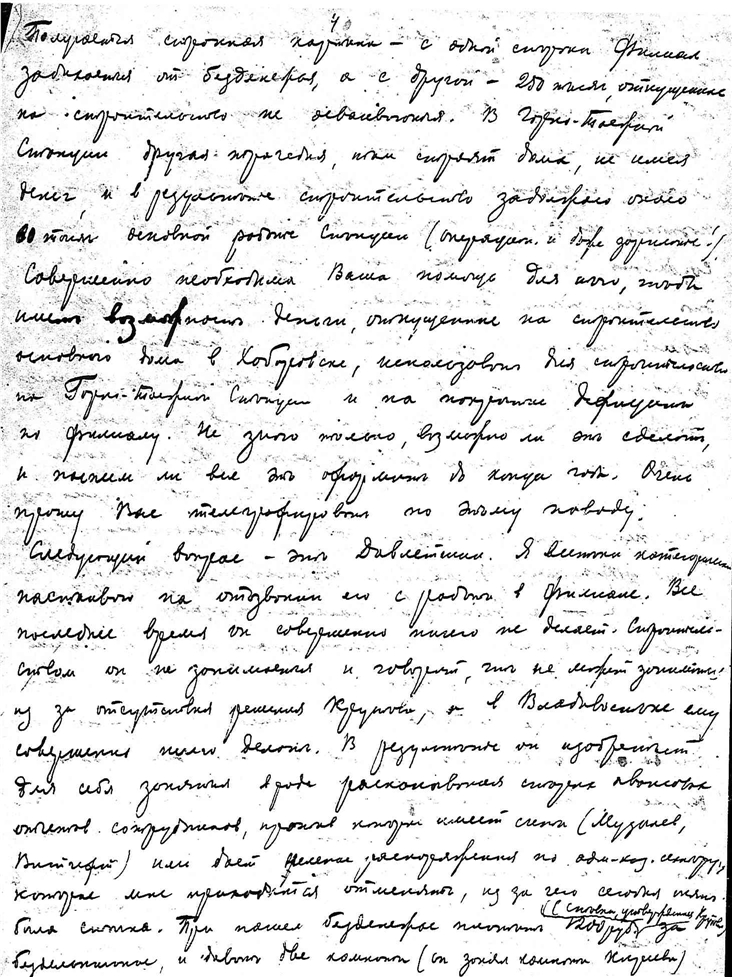 4
Получается странная картина – с одной стороны Филиал
задыхается от безденежья, а с другой – 250 тысяч, отпущенные
на строительство не осваиваются. В Горно-Таежной
Станции другая трагедия, там строят дома, не имея
денег, и в результате строительство задолжало около
60 тысяч основной работе Станции (операцион. и даже зарплате!)
Совершенно необходима Ваша помощь для того, чтобы
иметь возможность деньги, отпущенные на строительство
основного дома в Хабаровске, использовать для строительства
на Горно-Таежной Станции и на покрытие дефицита
по филиалу. Не знаю только, возможно ли это сделать,
и успеем ли все это оформить до конца года. Очень
прошу Вас телеграфировать по этому поводу.
Следующий вопрос – это Давлетшин. Я всетаки категорически
настаиваю на отозвании его с работы в филиале. Все
последнее время он совершенно ничего не делает. Строитель-
ством он не занимается и говорит, что не может заниматься
из за отсутствия решения Крутова, а в Владивостоке ему
совершенно нечего делать. В результате он изобретает
для себя занятия вроде раскапывания старых авансовых
отчетов сотрудников, против которых имеет счеты (Мудалев,
Витгефт) или дает нелепые распоряжения по адм-хоз. сектору,
которые мне приходится отменять, из за чего сегодня опять
была стычка. При нашем безденежье платить 1200 руб за
((ставка, утвержденная Крутовым)
безделие, и давать две комнаты (он занял комнаты